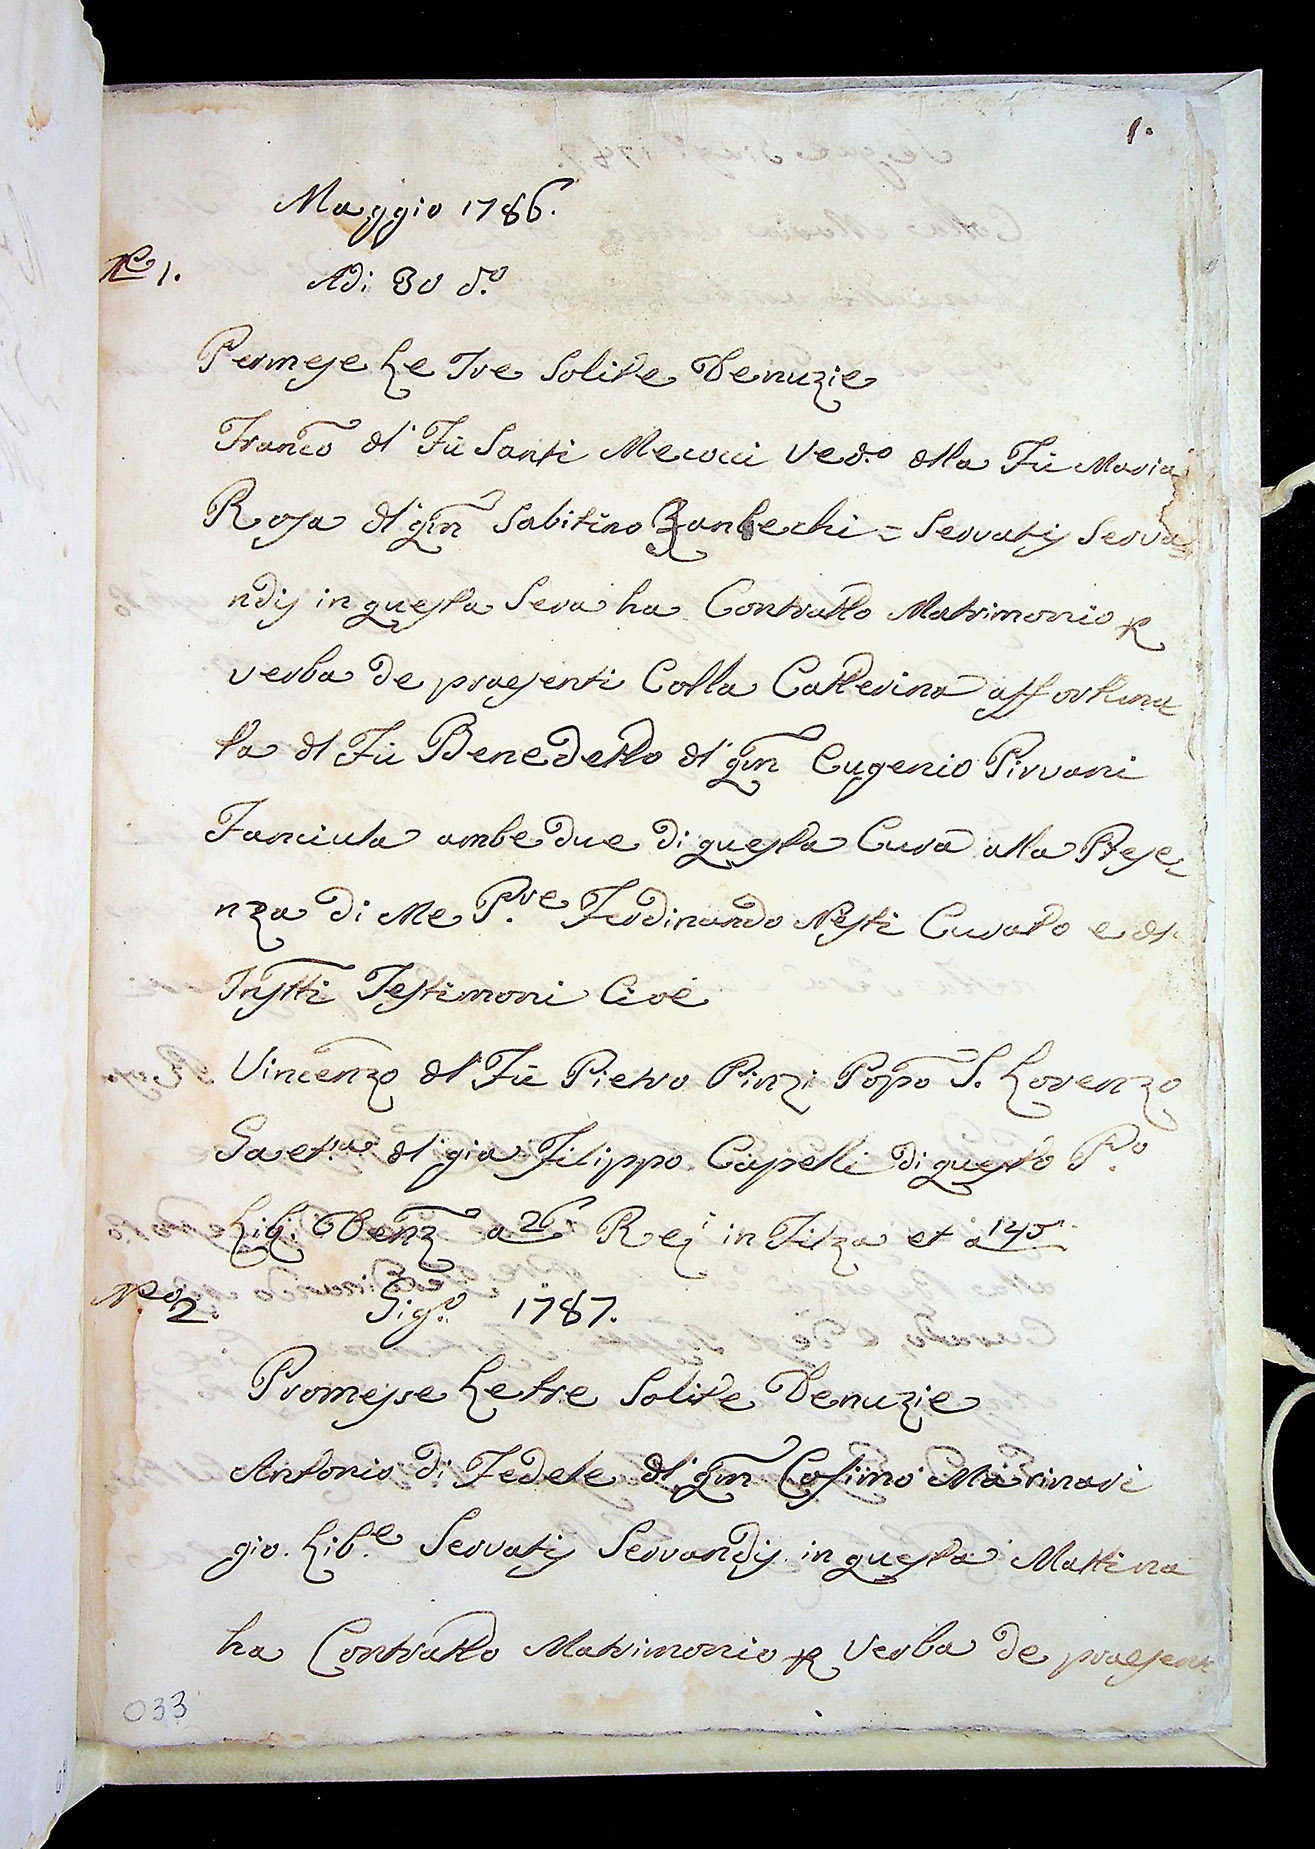 1.
Maggio 1786.
No 1.
Adi 30 do.
Permese Le Tre Solite Denuzie
Franco dl' Fù Santi Mecocci Vedo. dlla Fù Maria
Rosa dl' qm Sabitino Banbechi = Servatis Serva
ndis in questa Sera ha Contratto Matrimonio p
verba de praesenti Colla Catterina
ta dl Fù Benedetto dl' qm Eugenio Pirvani
Fanciula ambedue di questa Cura alla Prese
nza di Me P.re Ferdinando Nesti Curato e dl'
Testimoni Cioè
Vincenzo dl' Fù Pietro Pinzi Popo S. Lorenzo
Gaet.no dl' gia Filippo Capelli di questo P.o
Denz a 26 in Filza et a 145
No 2.
Giug.o 1787.
Promesse Le tre Solite Denuzie
Antonio di Fedele dl' qm Cosimo Marinari
gio. Lib.e Servatis Servandis in questa Mattina
ha Contratto Matrimonio p Verba de praesen
033